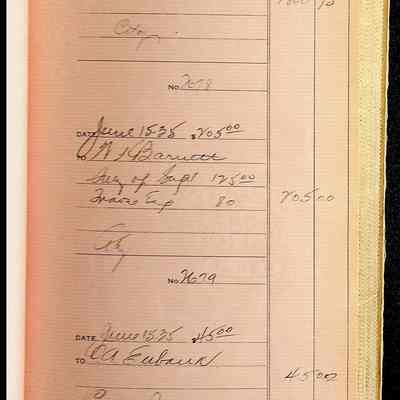 City
No. 7678
DATE June 15 35 $205.00
TO W Barnett
of Sept 125.00
Trav Exp 80 205 00
City
No. 7679
DATE June 15 35 $45.00
TO O A Eubank
45 00